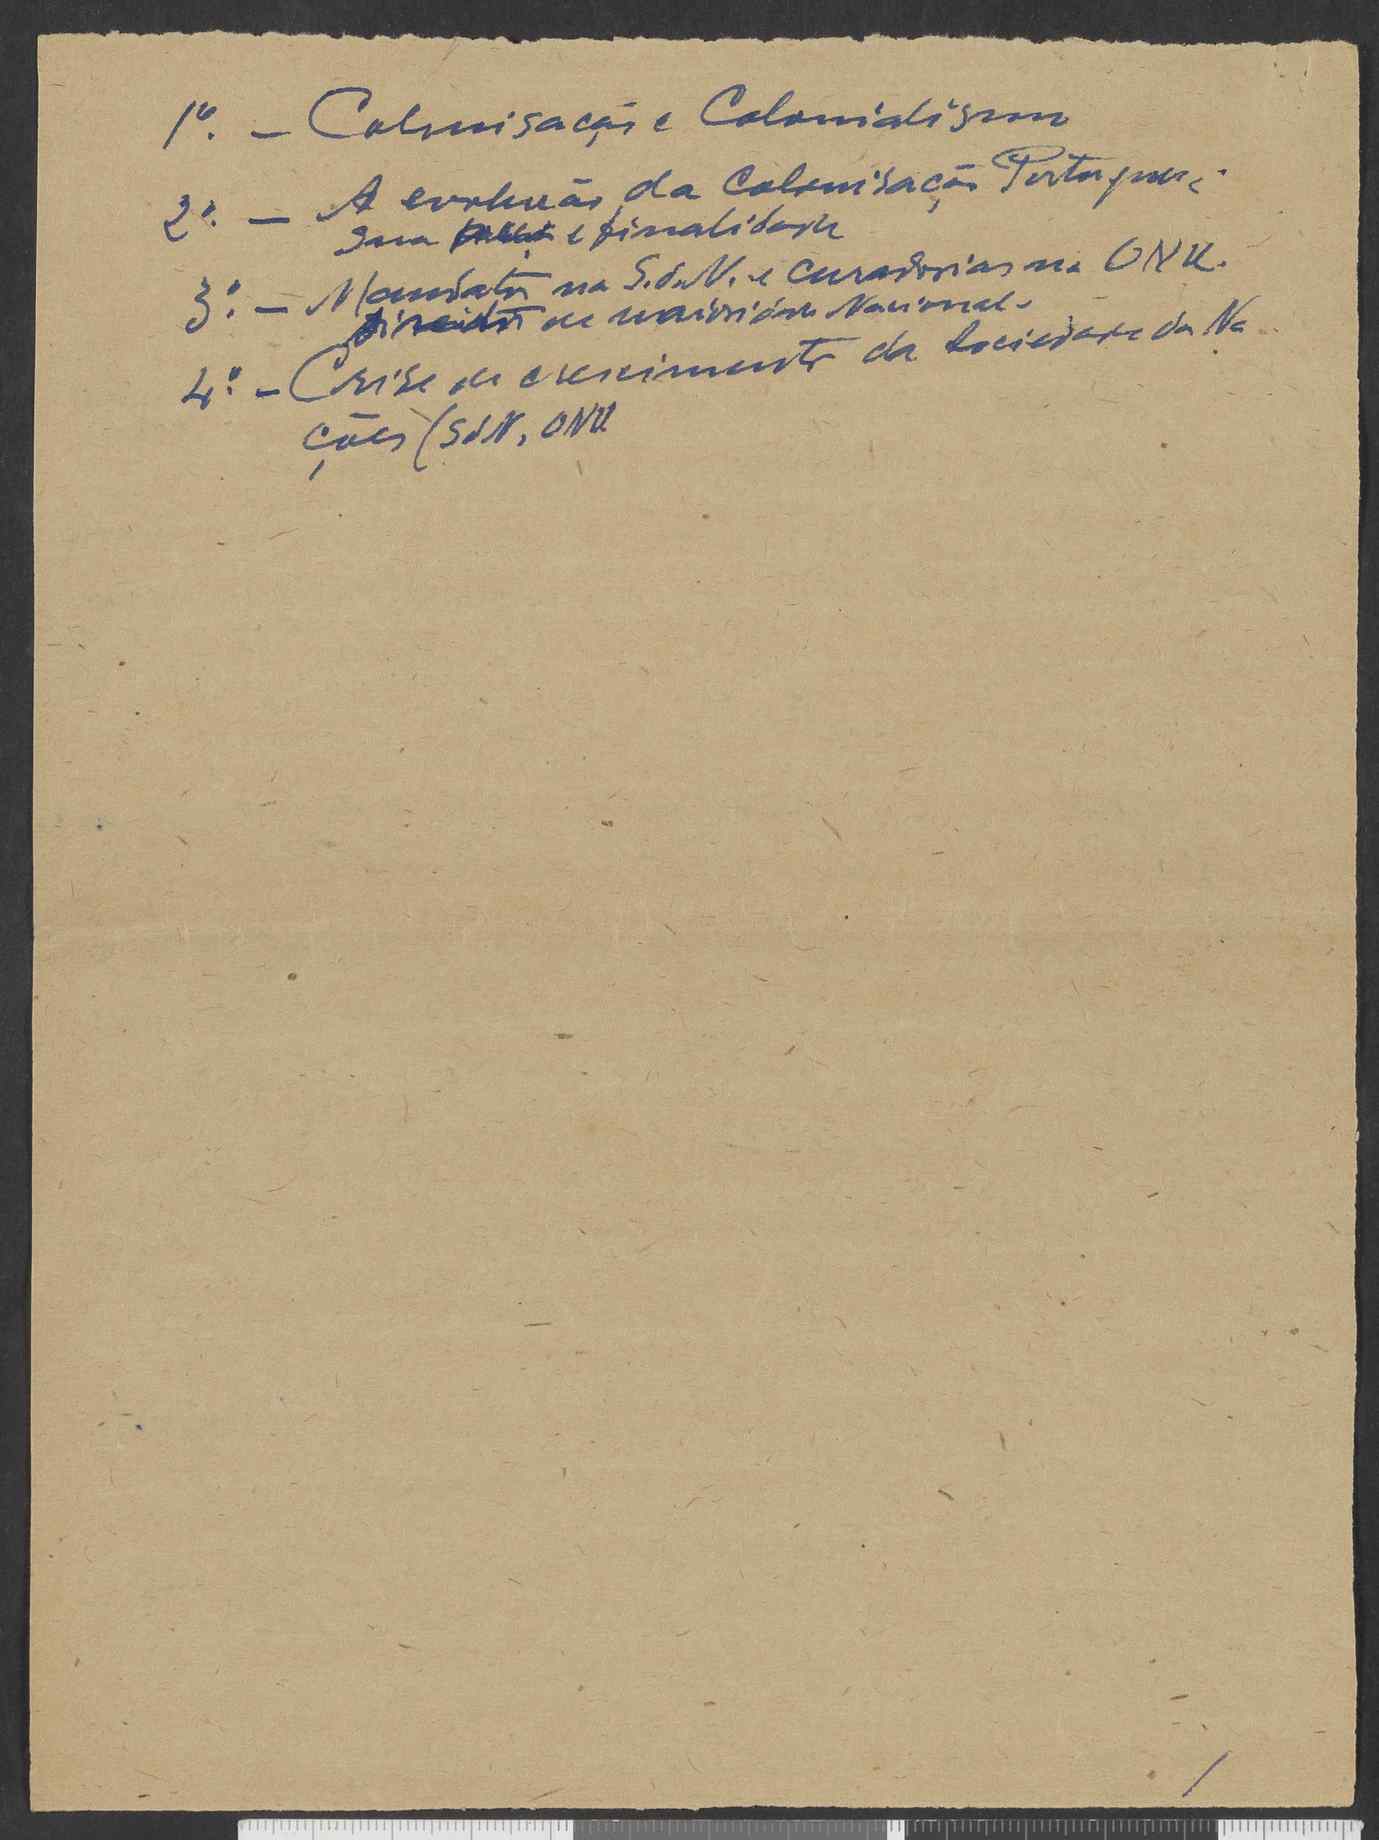 1º. – Colonisação e Colonialismo
2º. – A evolução da Colonisação Portuguesa.
Sua e finalidade
3º. – Mandatos na S.d.N. e curadorias na ONU.
Direito de maioridade Nacional.
4º. – Crise de crescimento da Sociedade da Na
ções (SdN, ONU
/